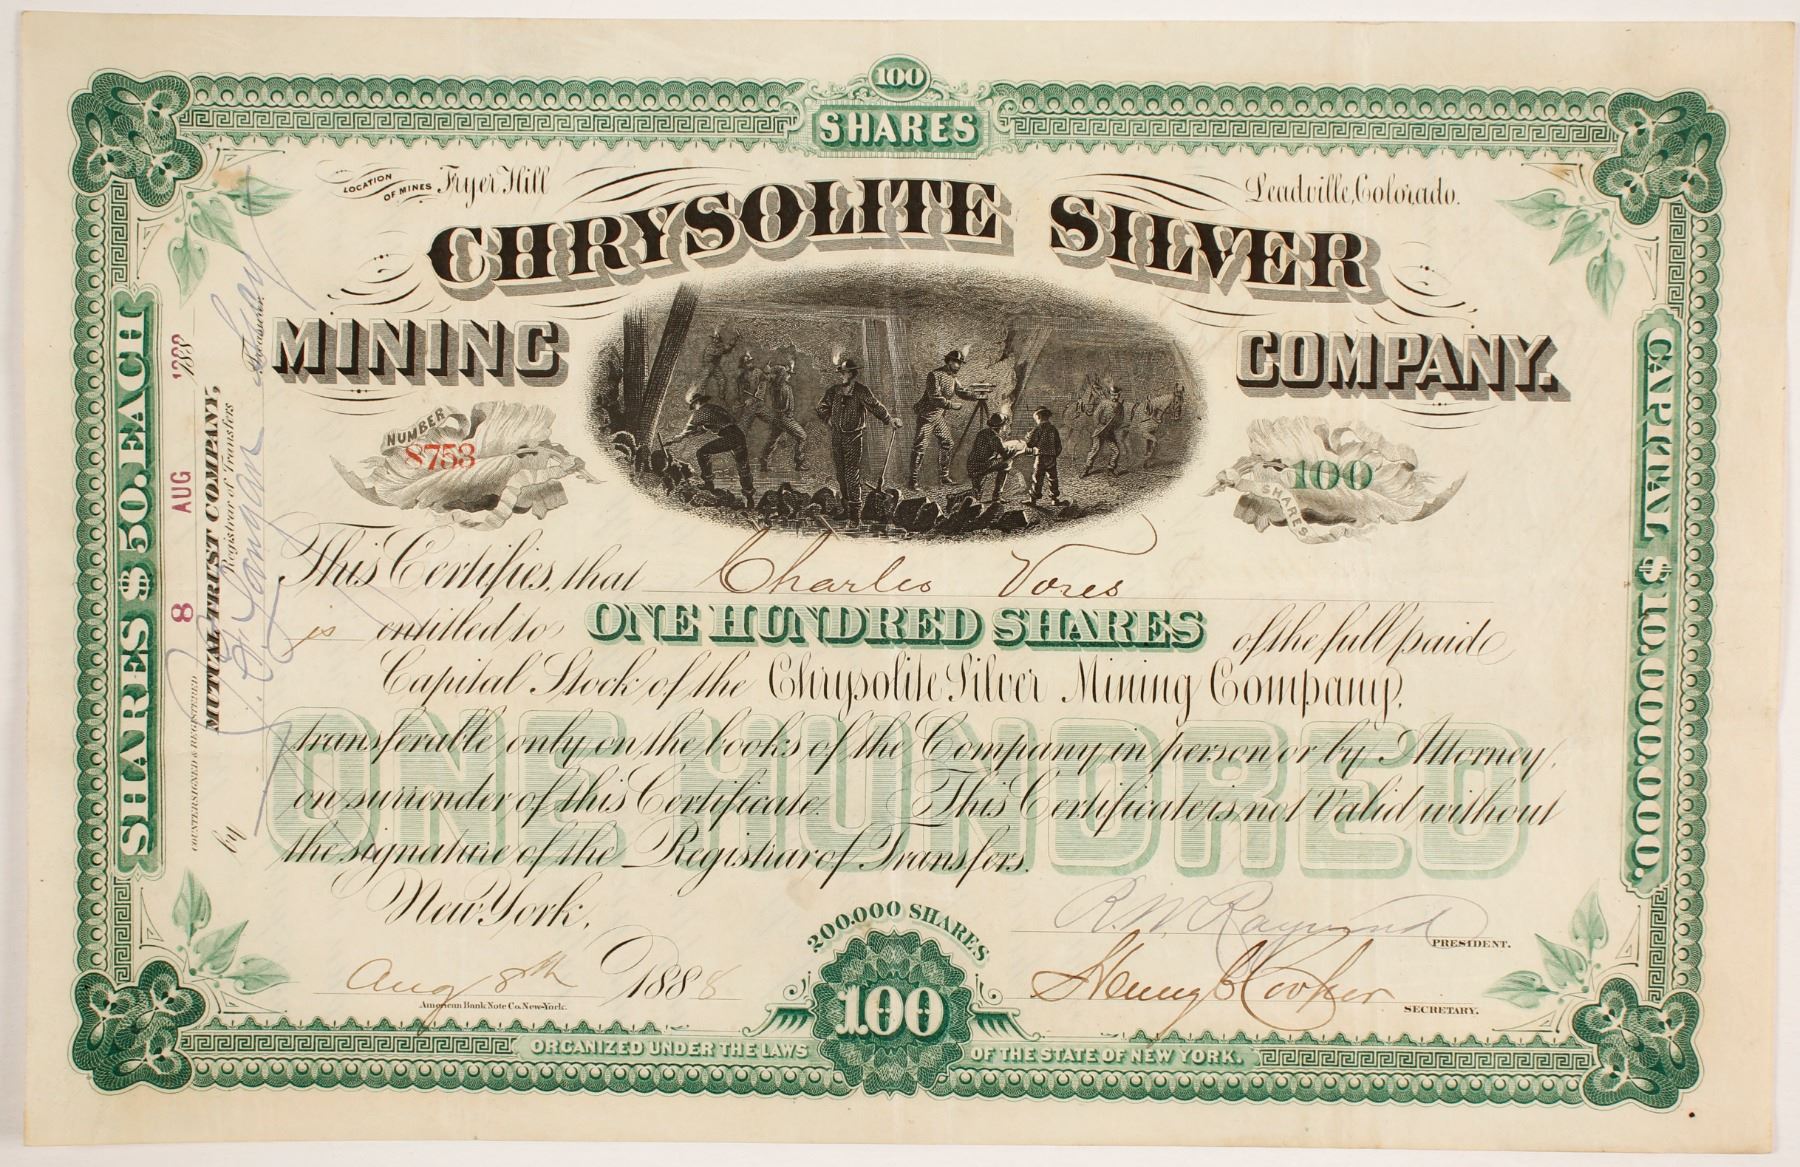 100
SHARES
LOCATION OF MINES Fryer Hill
Leadville, Colorado.
CHRYSOLITE SILVER
MINING COMPANY.
NUMBER
8753
100
SHARES
This Certifies, that Charles Vores
is entitled to ONE HUNDRED SHARES of the full paid
Capital Stock of the Chrysolite Silver Mining Company,
transferable only on the books of the Company in person or by Attorney,
on surrender of this Certificate. This Certificate is not Valid without
the signature of the Registrar of Transfers.
ONE HUNDRED
New York,
Aug 8th 1888
American Bank Note Co. New-York.
200,000 SHARES
100
R. W. Raymond
PRESIDENT.
Henry Cooper
SECRETARY.
ORGANIZED UNDER THE LAWS OF THE STATE OF NEW YORK.
SHARES $50. EACH
CAPITAL $10,000,000.
COUNTERSIGNED & REGISTERED
8 AUG 1888
188
MUTUAL TRUST COMPANY,
Registrar of Transfers
by